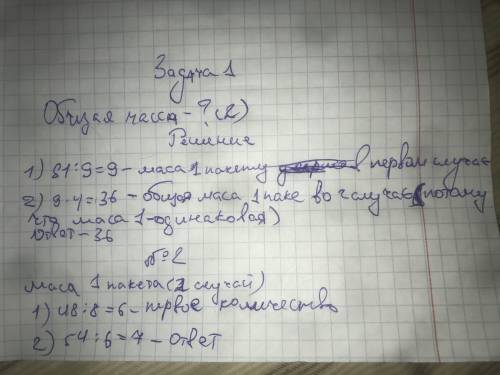 Задача 1
Общая масса - ? (2)
Решение
1) 81:9=9 - маса 1 пакету в первом случае
2) 9·4=36 - общая маса 1 паке во 2 случае (потому
что маса 1-одинаковая)
Ответ - 36
№2
маса 1 пакета (2 случай)
1) 48:8=6 - первое количество
2) 54:6=7 - ответ